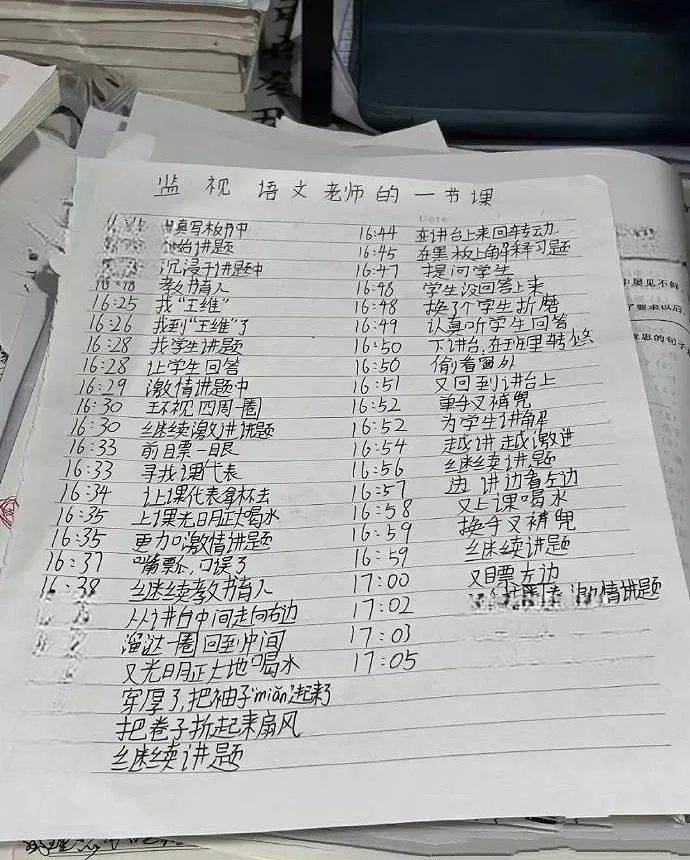 监视语文老师的一节课
Date
真写板书中
讲题
沉浸于讲题中
教书育人
16:25 找“王维”
16:26 找到“王维”了
16:28 找学生讲题
16:28 让学生回答
16:29 激情讲题中
16:30 环视四周一圈
16:30 继续激进讲题
16:33 前瞟一眼
16:33 寻找课代表
16:34 让课代表拿杯去
16:35 上课光明正大喝水
16:35 更加激情讲题
16:37 嘴瓢,口误了
16:38 继续教书育人
从讲台中间走向右边
溜达一圈回到中间
又光明正大地喝水
穿厚了,把袖子“miǎn”起来了
把卷子折起来扇风
继续讲题
16:44 在讲台上来回转动
16:45 在黑板上解释习题
16:47 提问学生
16:48 学生没回答上来
16:48 换了个学生折磨
16:49 认真听学生回答
16:50 下讲台,在班里转悠
16:50 偷看窗外
16:51 又回到讲台上
16:52 单手叉裤兜
16:52 为学生讲解
16:54 越讲越激进
16:56 继续讲题
16:57 边讲边看左边
16:58 又上课喝水
16:59 换手叉裤兜
16:59 继续讲题
17:00 又瞟左边
17:02 激情讲题
17:03
17:05